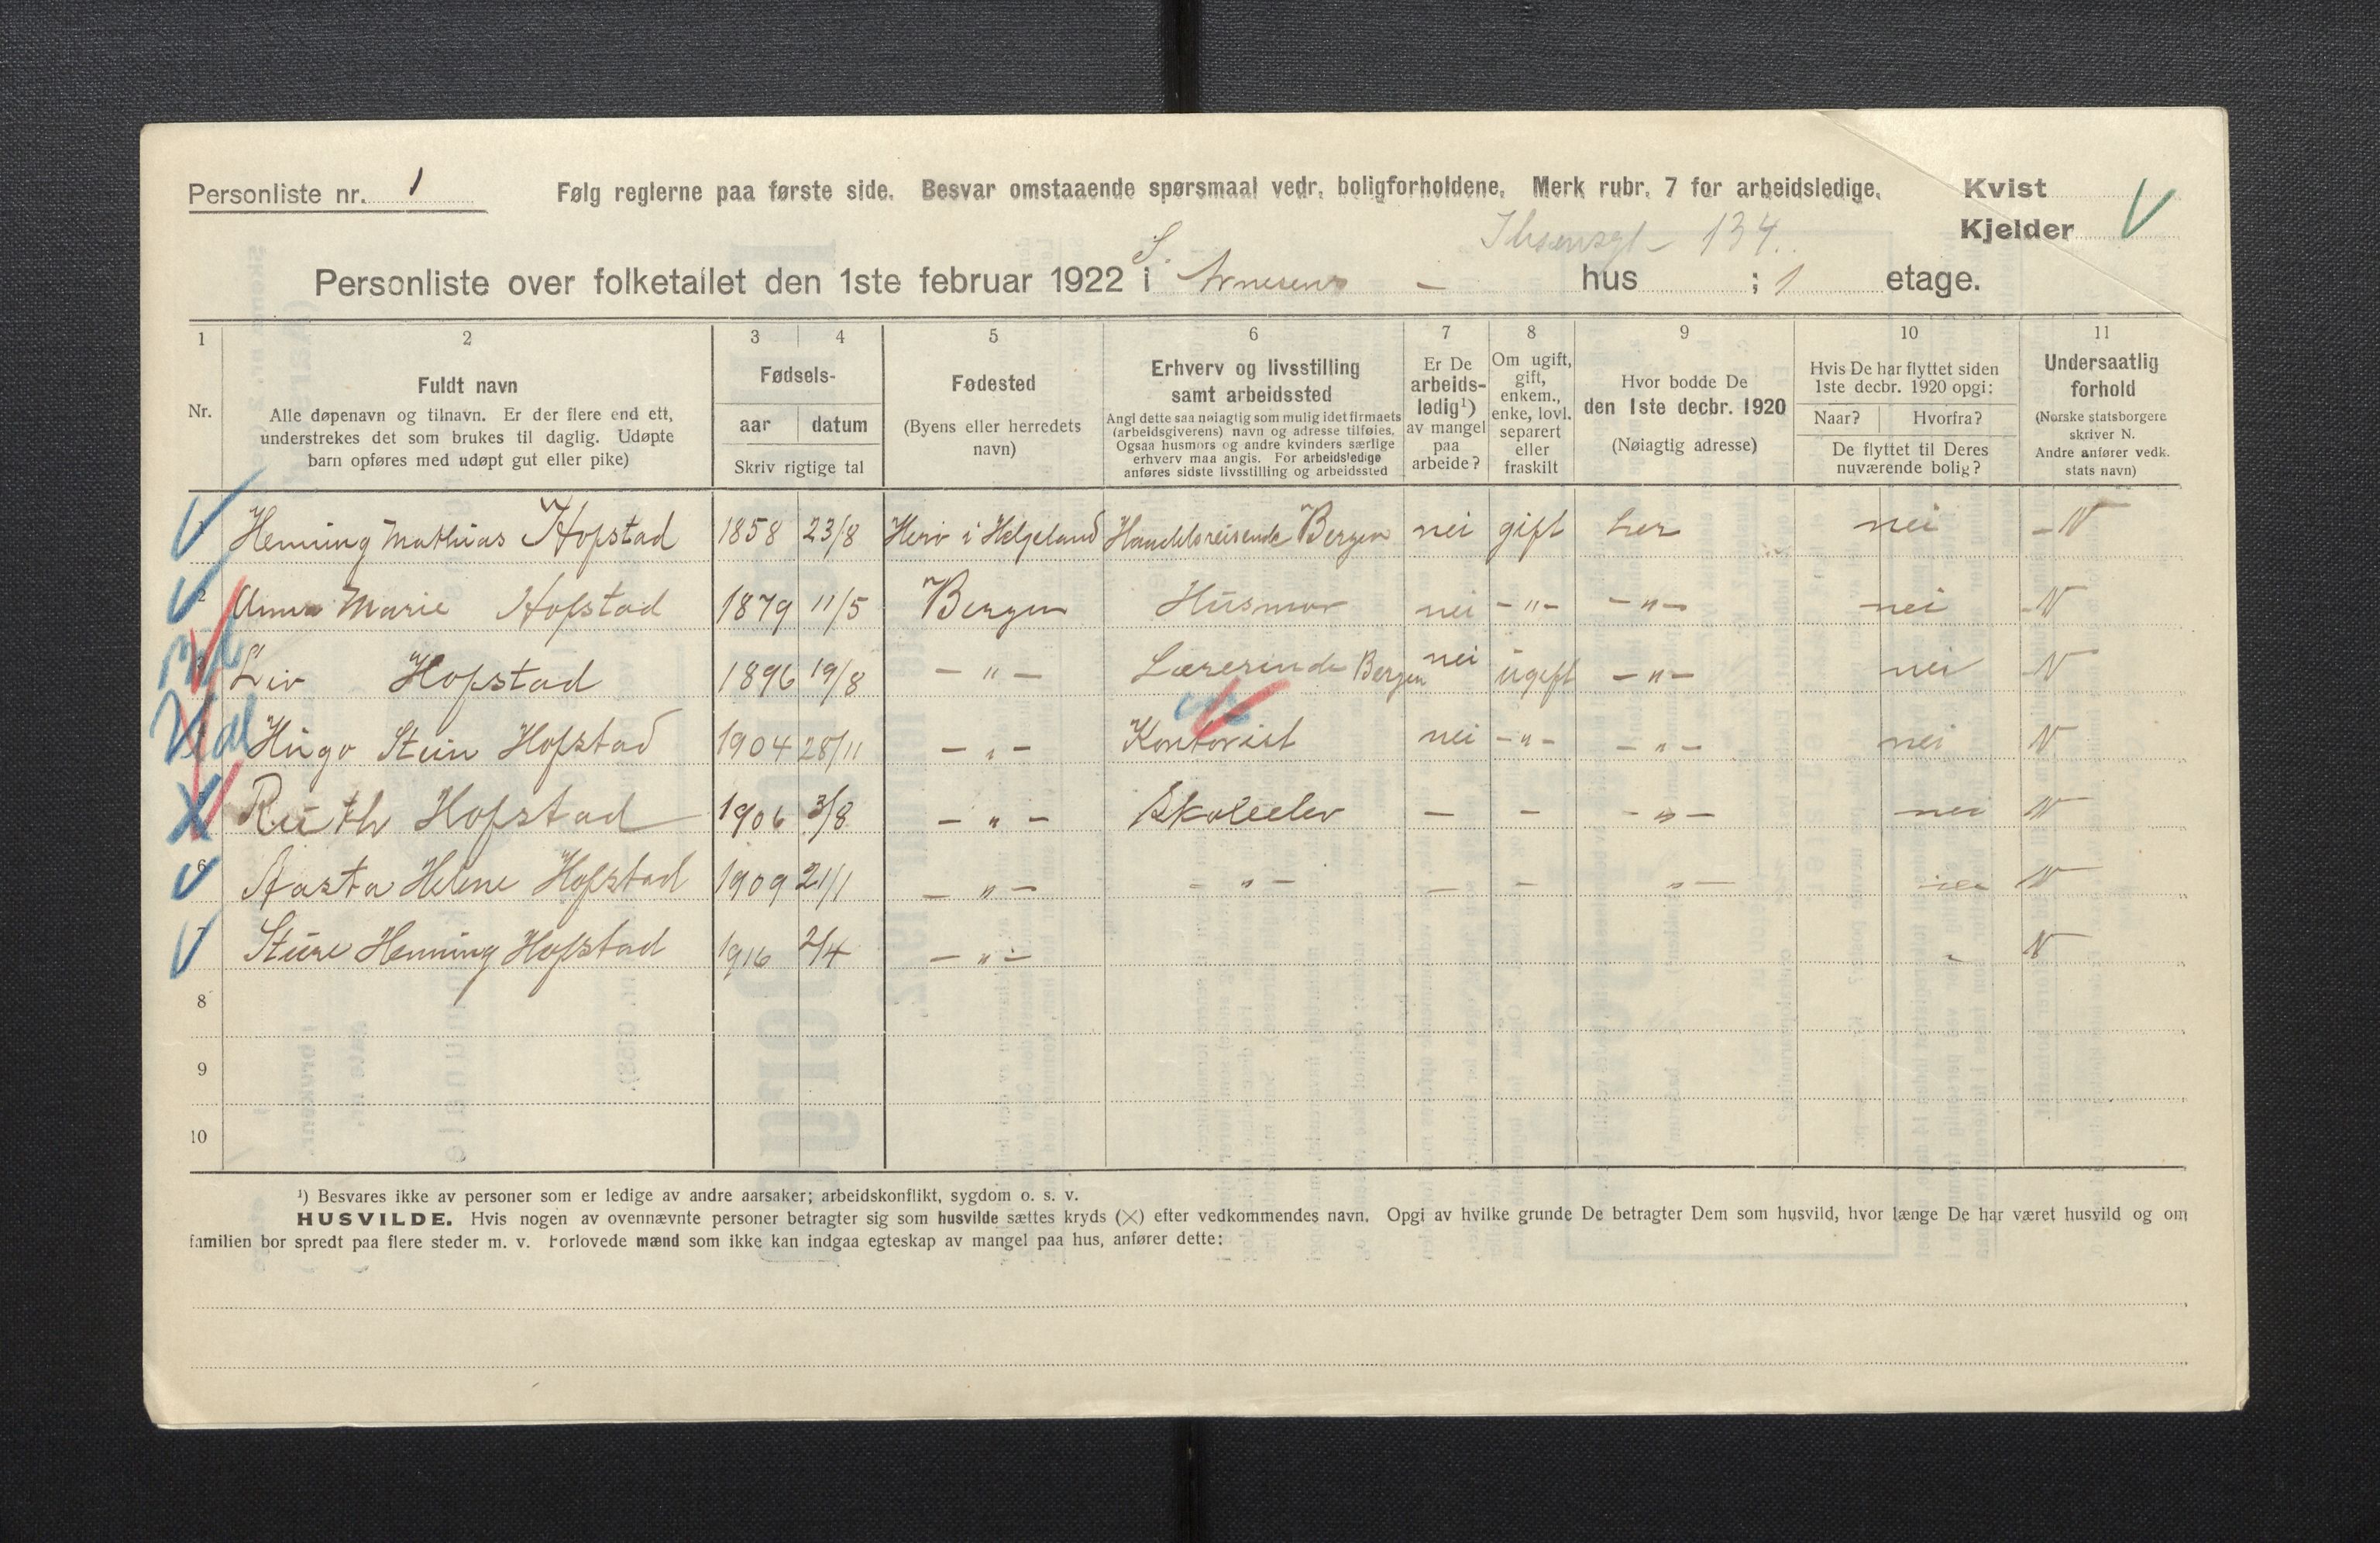 Personliste nr. 1 Følg reglerne paa første side. Besvar omstaaende spørsmaal vedr. boligforholdene. Merk rubr. 7 for arbeidsledige. Kvist
Kjelder
Ibsensgt- 134.
Personliste over folketallet den 1ste februar 1922 i S. Arnesens - hus ; 1 etage.
1 2 3 4 5 6 7 8 9 10 11
Nr.
Fuldt navn
Alle døpenavn og tilnavn. Er der flere end ett,
understrekes det som brukes til daglig. Udøpte
barn opføres med udøpt gut eller pike)
Fødsels-
aar datum
Skriv rigtige tal
Fødested
(Byens eller herredets
navn)
Erhverv og livsstilling
samt arbeidssted
Angi dette saa nøiagtig som mulig idet firmaets
(arbeidsgiverens) navn og adresse tilføies.
Ogsaa husmors og andre kvinders særlige
erhverv maa angis. For arbeidsledige
anføres sidste livsstilling og arbeidssted
Er De
arbeids-
ledig¹)
av mangel
paa
arbeide?
Om ugift,
gift,
enkem.,
enke, lovl.
separert
eller
fraskilt
Hvor bodde De
den 1ste decbr. 1920
(Nøiagtig adresse)
Hvis De har flyttet siden
1ste decbr. 1920 opgi:
Naar? Hvorfra?
De flyttet til Deres
nuværende bolig?
Undersaatlig
forhold
(Norske statsborgere
skriver N.
Andre anfører vedk.
stats navn)
Henning Mathias Hofstad 1858 23/8 Herø i Helgeland Handelsreisende Bergen nei gift her nei - N
2 Anna Marie Hofstad 1879 11/5 Bergen Husmor nei - " - - " - nei - N
Liv Hofstad 1896 19/8 - " - Lærerinde Bergen nei ugift - " - nei N
Hugo Stein Hofstad 1904 28/11 - " - Kontorist nei - " - - " - nei N
Ruth Hofstad 1906 3/8 - " - Skoleelev - - - " - nei N
6 Aasta Helene Hofstad 1909 21/1 - " - - " - - - " - nei N
7 Sture Henning Hofstad 1916 2/4 - " - N
8
9
10
¹) Besvares ikke av personer som er ledige av andre aarsaker; arbeidskonflikt, sygdom o. s. v.
HUSVILDE. Hvis nogen av ovennævnte personer betragter sig som husvilde sættes kryds (×) efter vedkommendes navn. Opgi av hvilke grunde De betragter Dem som husvild, hvor længe De har været husvild og om
familien bor spredt paa flere steder m. v. Forlovede mænd som ikke kan indgaa egteskap av mangel paa hus, anfører dette: